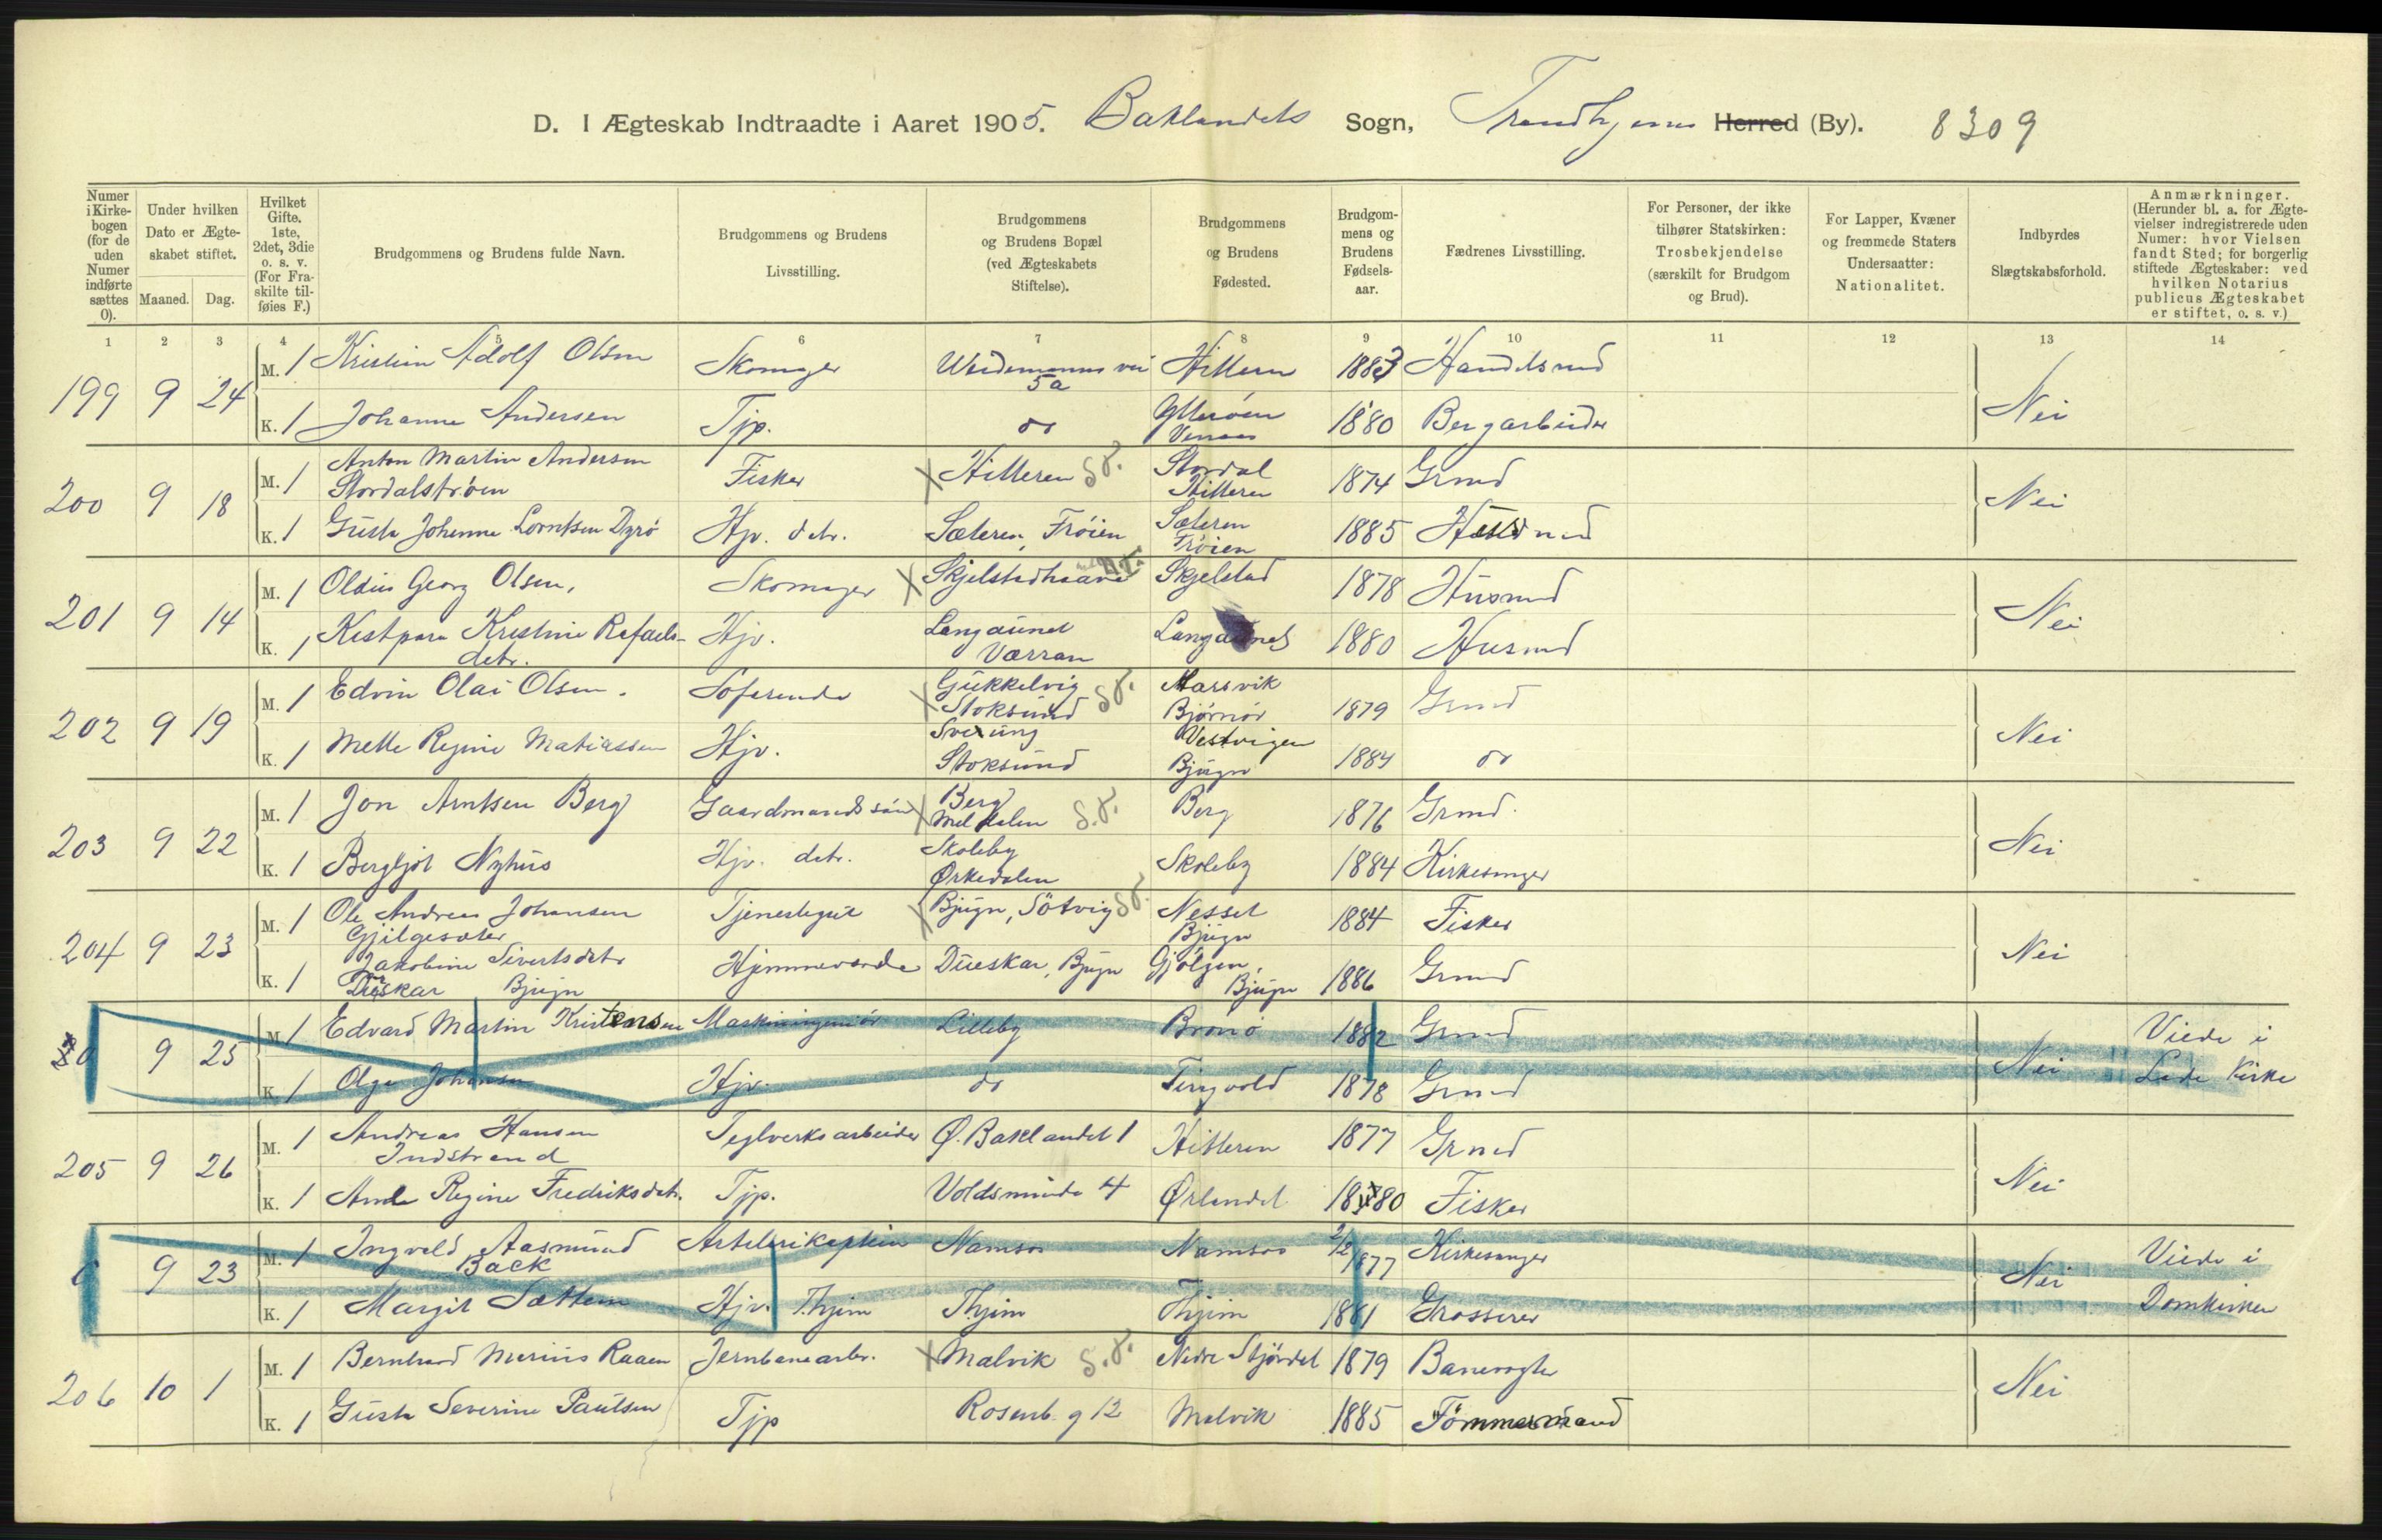 D. I Ægteskab Indtraadte i Aaret 1905. Baklandets Sogn, Trondhjems Herred (By). 8309
Numer i Kirkebogen (for de uden Numer indførte sættes 0).
Under hvilken Dato er Ægteskabet stiftet.
Maaned. Dag.
Hvilket Gifte, 1ste, 2det, 3die o. s. v. (For Fraskilte tilføies F.)
Brudgommens og Brudens fulde Navn.
Brudgommens og Brudens Livsstilling.
Brudgommens og Brudens Bopæl (ved Ægteskabets Stiftelse).
Brudgommens og Brudens Fødested.
Brudgommens og Brudens Fødselsaar.
Fædrenes Livsstilling.
For Personer, der ikke tilhører Statskirken: Trosbekjendelse (særskilt for Brudgom og Brud).
For Lapper, Kvæner og fremmede Staters Undersaatter: Nationalitet.
Indbyrdes Slægtskabsforhold.
Anmærkninger. (Herunder bl. a. for Ægtevielser indregistrerede uden Numer: hvor Vielsen fandt Sted; for borgerlig stiftede Ægteskaber: ved hvilken Notarius publicus Ægteskabet er stiftet, o. s. v.)
1 2 3 4 5 6 7 8 9 10 11 12 13 14
199 9 24 M. 1 Kristian Adolf Olsen Skomager Weidemanns vei 5a Hitteren 1883 Handelsmd Nei
K. 1 Johanne Andersen Tjp. do Ytterøen 1880 Bergarbeider
200 9 18 M. 1 Anton Martin Andersen Stordalstrøen Fisker Hitteren S.T. Stordal Hitteren 1874 Grmd Nei
K. 1 Gusta Johanna Lorntsen Dyrö Hjv. dtr. Sæteren, Fröien Sæteren Fröien 1885 Husmd
201 9 14 M. 1 Oldius Georg Olsen, Skomager Skjelstadhaave N.T. Skjelstad 1878 Husmd Nei
K. 1 Kristine Rafaelsdtr. Hjv. Langaunet Værran Langaunet 1880 Husmd
202 9 19 M. 1 Edvin Olai Olsen. Sofarende Gukkelvig Stoksund S.T. Marsvik Bjørnør 1879 Grmd Nei
K. 1 Mette Regine Matiassen Hjv. Stoksund Vestvigen Bjugn 1884 do
203 9 22 M. 1 Jon Arntsen Berg Gaardmandssøn Berg Meldalen S.T. Berg 1876 Grmd. Nei
K. 1 Bergljot Nyhus Hjv. dtr. Skoleby Ørkedalen Skoleby 1884 Kirkesanger
204 9 23 M. 1 Ole Andreas Johansen Gjilgesæter Tjenestegut Bjugn, Sötvig S.T. Nesset Bjugn 1884 Fisker Nei
K. 1 Jakobine Sivertsdtr Dueskar Bjugn Hjemmeværde Dueskar, Bjugn Gjölgen, Bjugn 1886 Grmd
0 9 25 M. 1 Edvard Martin Kristensen Maskiningeniör Lilleby Brönö 1882 Grmd Nei Viede i Lade Kirke
K. 1 Olga Johansen Hjv. do Tingvold 1878 Grmd
205 9 26 M. 1 Andreas Hansen Indstrand Teglverksarbeider Ø. Baklandet 1 Hitteren 1877 Grmd Nei
K. 1 Regine Fredriksdtr. Tjp. Voldsminde 4 Ørlandet 1880 Fisker
0 9 23 M. 1 Ingvald Aasmund Back Artelerikaptein Namsos Namsos 2/2 1877 Kirkesanger Nei Viede i Domkirken
K. 1 Margit Sættem Hjv. Thjem Thjem Thjem 1881 Grosserer
206 10 1 M. 1 Bernhard Marius Raaen Jernbanearbr. Malvik S.T. Nedre Stjördal 1879 Banevogter Nei
K. 1 Gusta Severine Paulsen Tjp Rosenb. g 12 Malvik 1885 Tömmermand